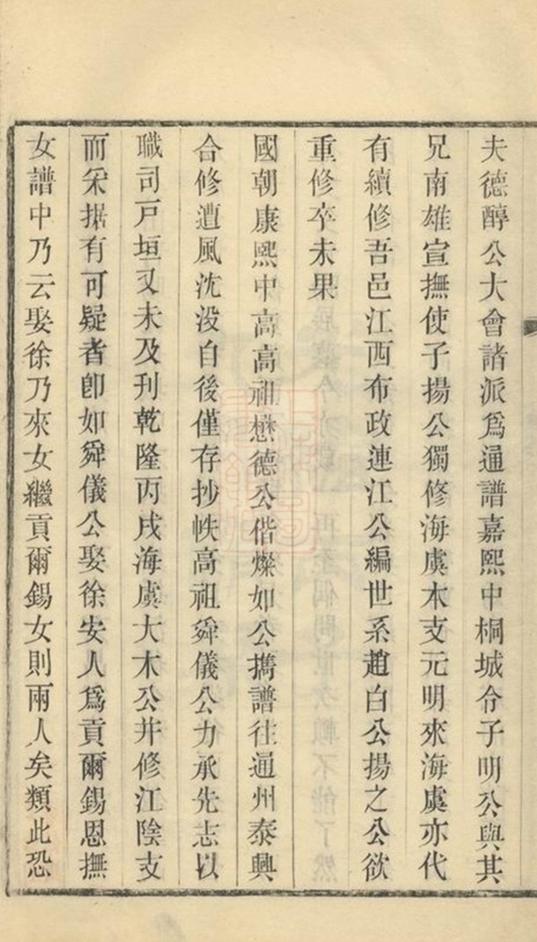 夫德醇公大會諸派爲通譜嘉熙中桐城令子明公與其
兄南雄宣撫使子揚公獨修海虞本支元明來海虞亦代
有續修吾邑江西布政連江公編世系趙白公揚之公欲
重修卒未果
國朝康熙中高高祖懋德公偕燦如公携譜往通州泰興
合修遭風沈没自後僅存抄帙高祖舜儀公力承先志以
職司戸垣又未及刊乾隆丙戌海虞大木公并修江陰支
而采据有可疑者卽如舜儀公娶徐安人爲貢爾錫恩撫
女譜中乃云娶徐乃來女繼貢爾錫女則兩人矣類此恐